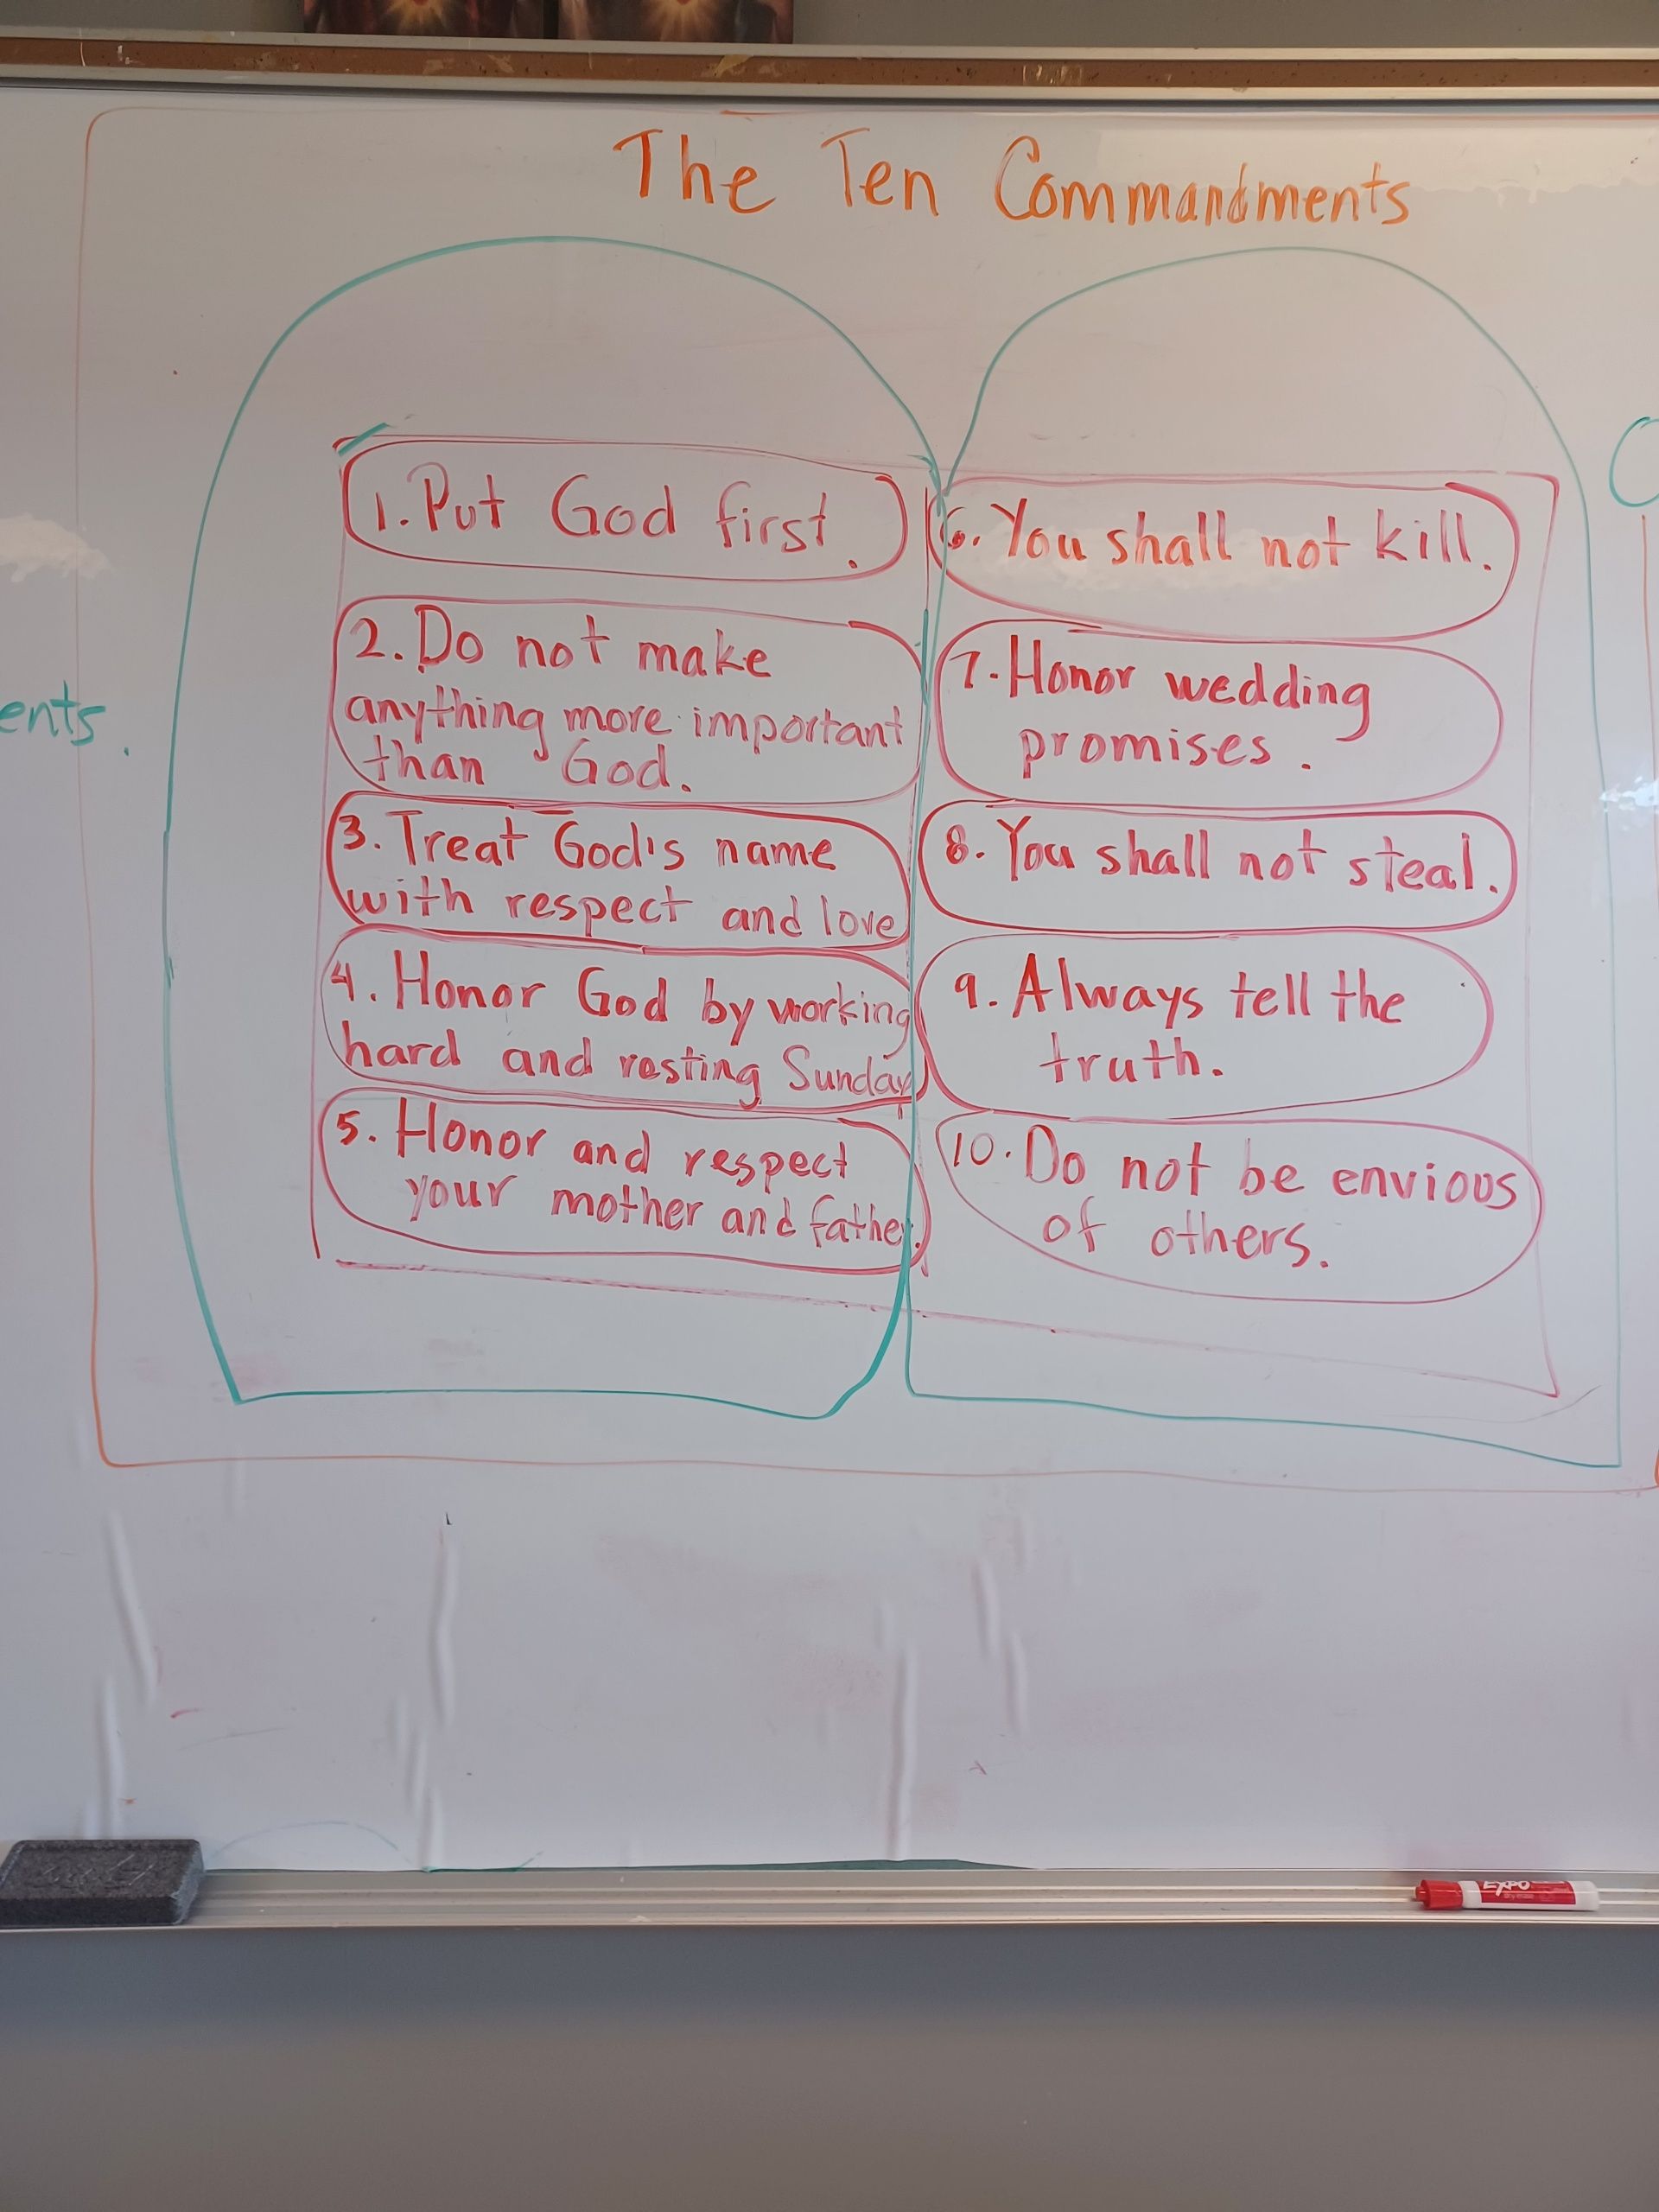 The Ten Commandments
1. Put God first.
2. Do not make
anything more important
than God.
3. Treat God's name
with respect and love
4. Honor God by working
hard and resting Sunday
5. Honor and respect
your mother and father.
6. You shall not kill.
7. Honor wedding
promises.
8. You shall not steal.
9. Always tell the
truth.
10. Do not be envious
of others.
ents.
EXPO